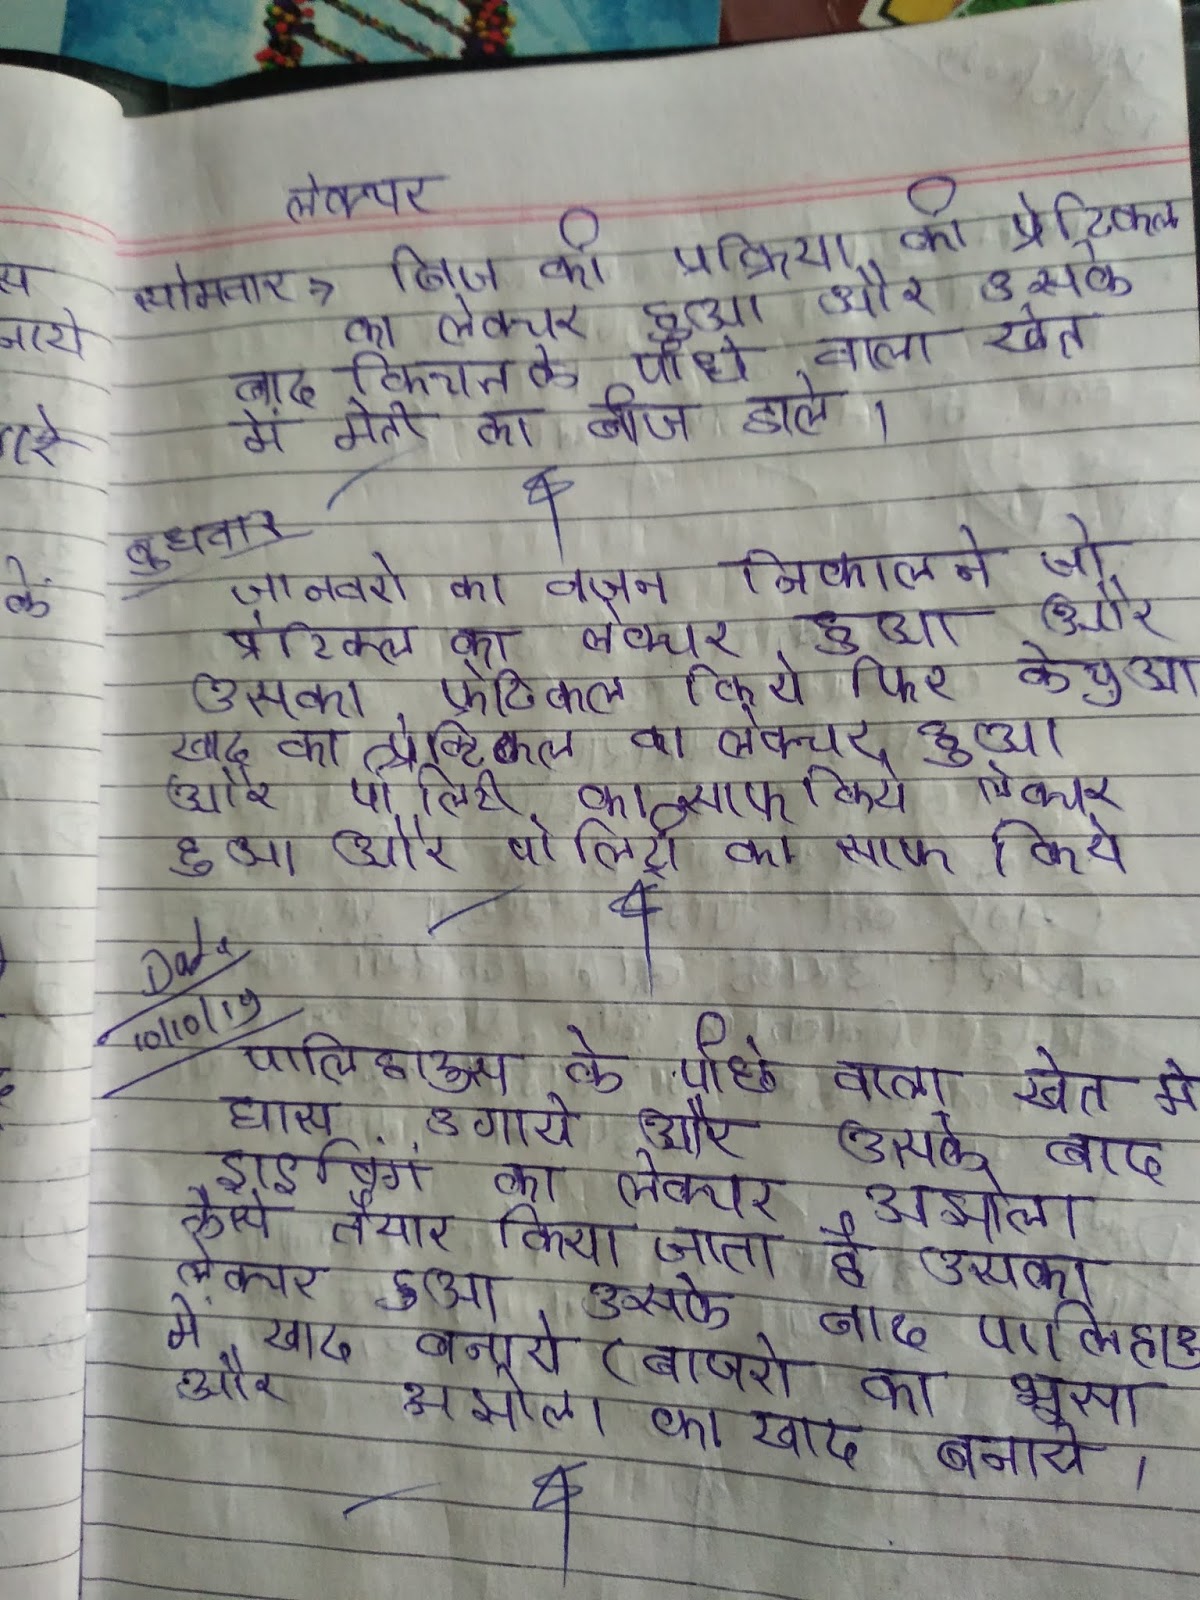 लेक्चर
सोमवार → बिज की प्रक्रिया की प्रेटिकल
का लेक्चर हुआ और उसके
बाद किचन के पीछे वाला खेत
में मेती का बीज डाले ।
बुधवार
जानवरो का वजन निकालने जो
प्रेटिकल का लेक्चर हुआ और
उसका प्रेटिकल किये फिर केचुआ
खाद का प्रेक्टिकल का लेक्चर हुआ
और पोलिट्री का साफ किये लेक्चर
हुआ और पोलिट्री का साफ किये
Date
10/10/19
पालिहाऊस के पीछे वाला खेत मे
घास उगाये और उसके बाद
ड्राइविंग का लेक्चर अझोला
कैसे तैयार किया जाता है उसका
लेक्चर हुआ उसके बाद पालिहाऊ
मे खाद बनाये (बाजरो का भूसा
और अझोला का खाद बनाये ।
स
जाये
के